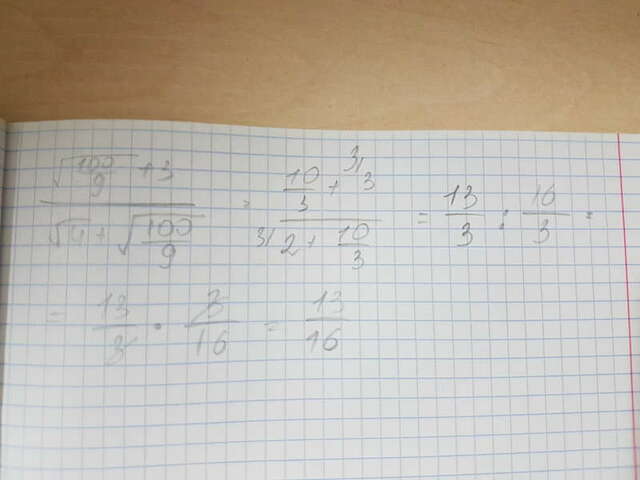 (√(100/9) + 3) / (√4 + √(100/9)) = (10/3 + ³⁾3) / (³⁾2 + 10/3) = 13/3 : 16/3 =
= 13/3 · 3/16 = 13/16